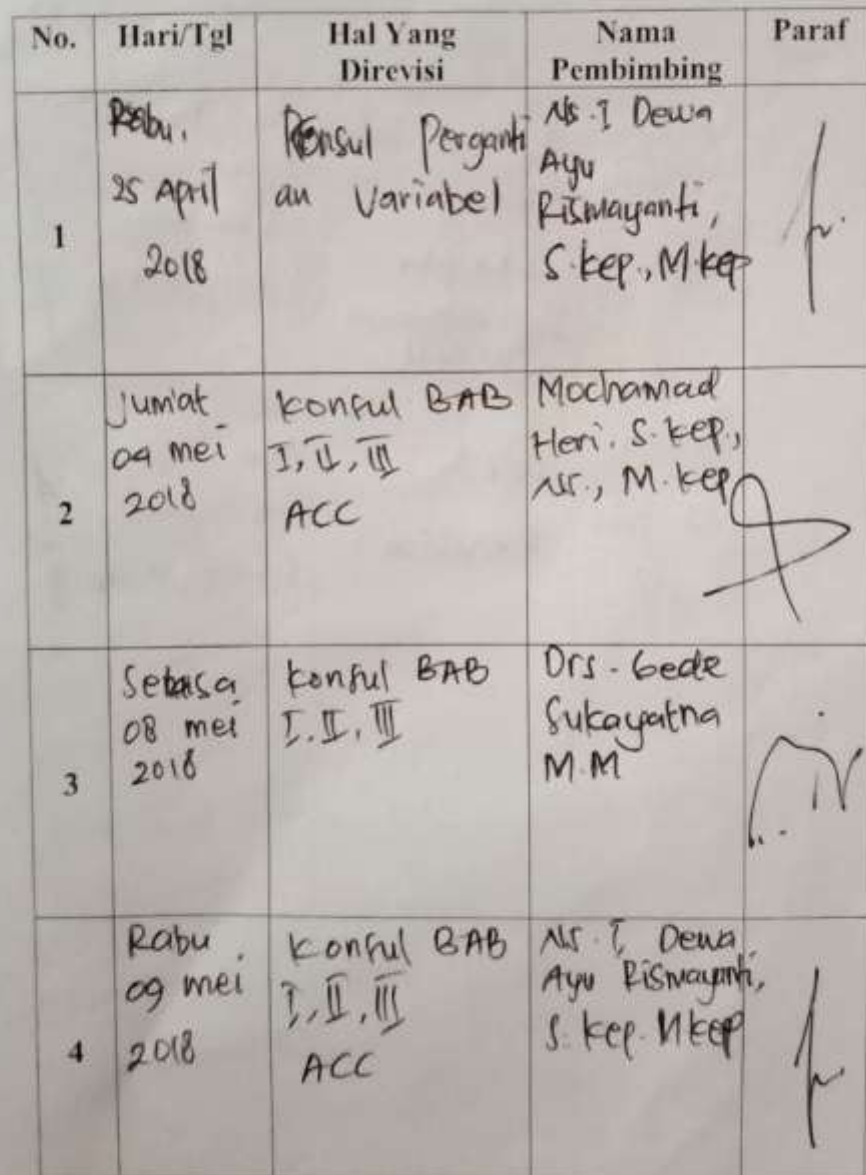 No. Hari/Tgl Hal Yang Direvisi Nama Pembimbing Paraf
1
Rabu,
25 April
2018
Konsul Perganti
an Variabel
Ns. I Dewa
Ayu
Rismayanti,
S.kep., M.kep
2
Jum'at
04 mei
2018
konsul BAB
I, II, III
ACC
Mochamad
Heri. S.kep.,
Ns., M.kep
3
Selasa
08 mei
2018
konsul BAB
I. II. III
Drs. Gede
Sukayatna
M.M
4
Rabu
09 mei
2018
konsul BAB
I, II, III
ACC
Ns. I, Dewa
Ayu Rismayanti,
S.kep. M.kep